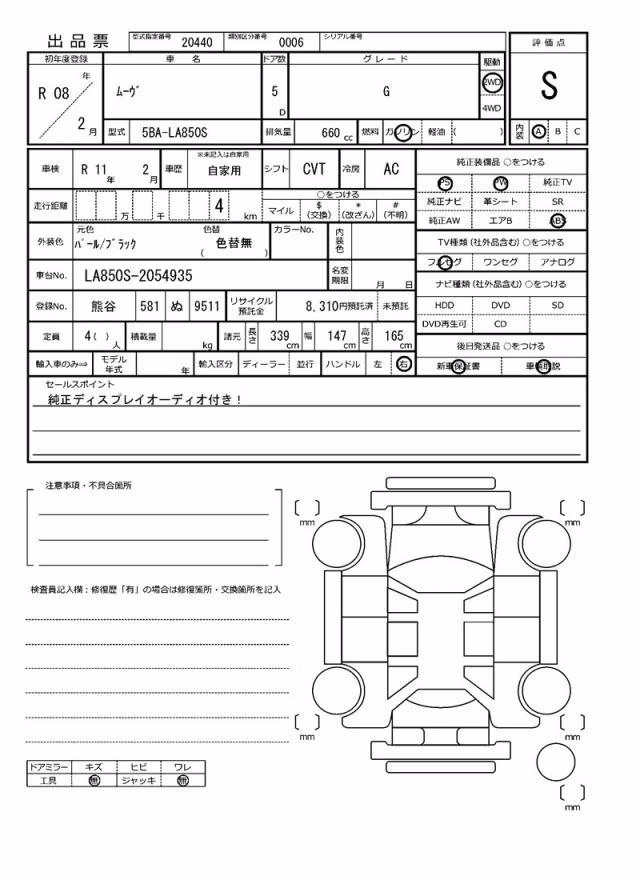 出品票 型式指定番号 20440 類別区分番号 0006 シリアル番号
評価点
S
内装 A B C
初年度登録 車名 ドア数 グレード 駆動
R 08 年 2 月 ムーヴ 5 D G 2WD 4WD
型式 5BA-LA850S 排気量 660 cc 燃料 ガソリン 軽油 ( )
車検 R 11 年 2 月 車歴 ※未記入は自家用 自家用 シフト CVT 冷房 AC
走行距離 万 千 4 km ○をつける
マイル $ (交換) * (改ざん) # (不明)
外装色 元色 パール/ブラック 色替 ( 色替無 ) カラーNo. 内装色
車台No. LA850S-2054935 名変期限 月 日
登録No. 熊谷 581 ぬ 9511 リサイクル預託金 8,310円預託済 未預託
定員 4 ( ) 人 積載量 kg 諸元 長さ 339 cm 幅 147 cm 高さ 165 cm
輸入車のみ⇒ モデル年式 年 輸入区分 ディーラー 並行 ハンドル 左 右
純正装備品 ○をつける
PS PW 純正TV
純正ナビ 革シート SR
純正AW エアB ABS
TV種類 (社外品含む) ○をつける
フルセグ ワンセグ アナログ
ナビ種類 (社外品含む) ○をつける
HDD DVD SD
DVD再生可 CD
後日発送品 ○をつける
新車保証書 車輌取説
セールスポイント
純正ディスプレイオーディオ付き!
注意事項・不具合箇所
検査員記入欄:修復歴「有」の場合は修復箇所・交換箇所を記入
ドアミラー キズ ヒビ ワレ
工具 無 ジャッキ 無
mm
mm
mm
mm
mm